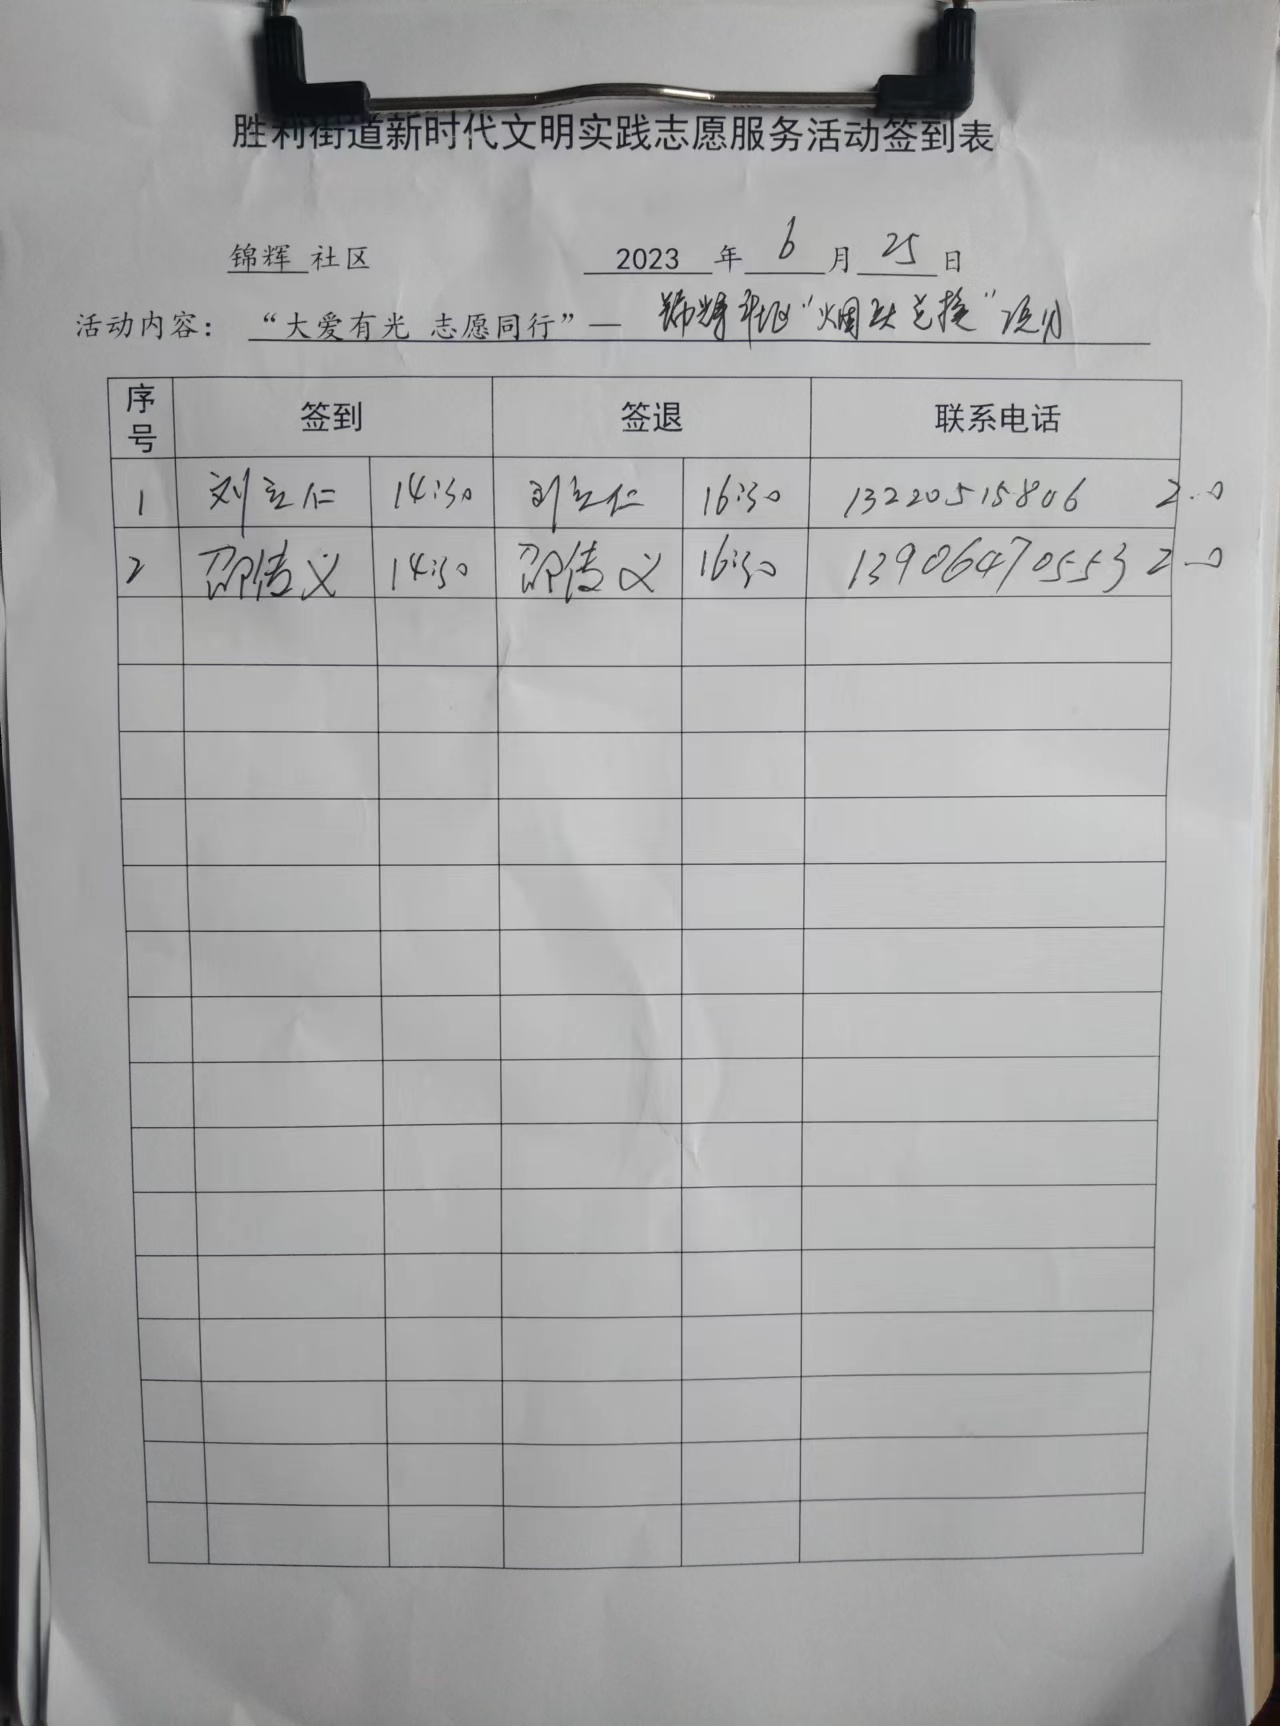 胜利街道新时代文明实践志愿服务活动签到表
锦辉 社区 2023 年 6 月 25 日
活动内容： “大爱有光 志愿同行”— 锦辉社区“烟头兑换”活动
序号 签到 签退 联系电话
1 刘立仁 14:30 刘立仁 16:30 13220515806 2.0
2 邵传义 14:30 邵传义 16:30 13906470553 2.0